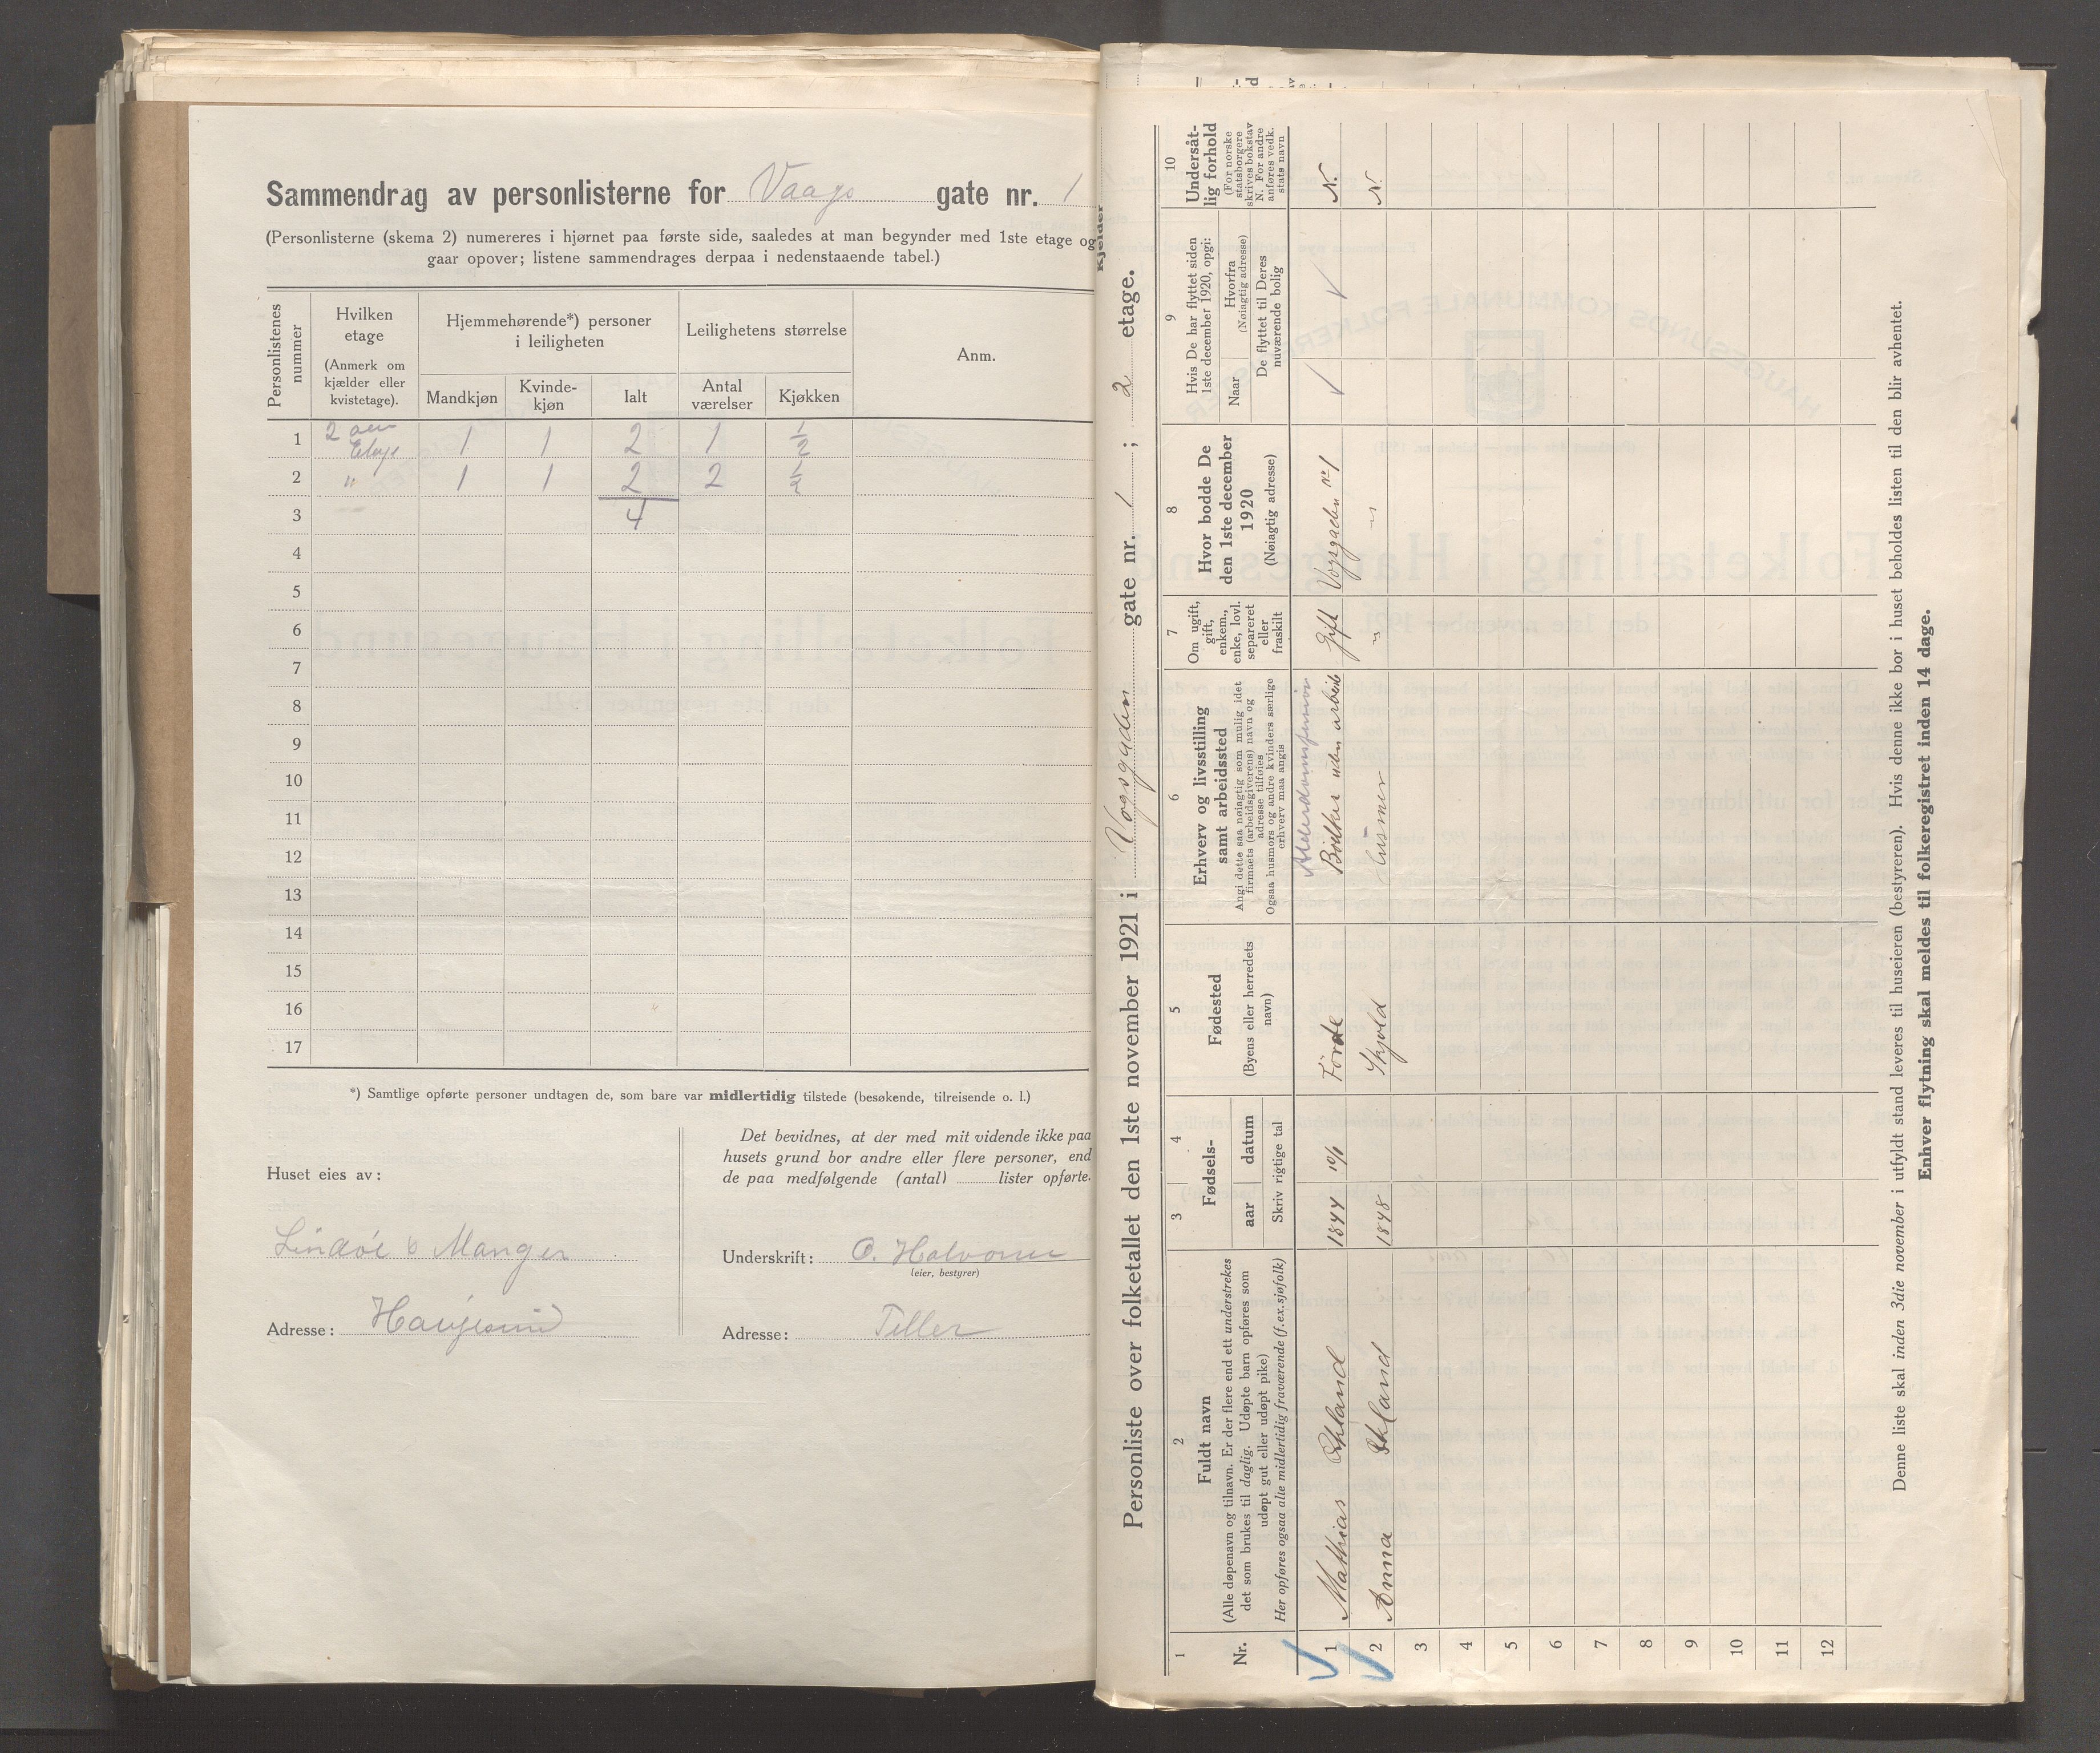 Sammendrag av personlisterne for Vaags gate nr. 1
(Personlisterne (skema 2) numereres i hjørnet paa første side, saaledes at man begynder med 1ste etage og
gaar opover; listene sammendrages derpaa i nedenstaaende tabel.)
Personlistenes nummer
Hvilken etage (Anmerk om kjælder eller kvistetage).
Hjemmehørende*) personer i leiligheten
Leilighetens størrelse
Anm.
Mandkjøn
Kvinde-kjøn
Ialt
Antal værelser
Kjøkken
1 2 Etage 1 1 2 1 1/2
2 " 1 1 2 2 1/2
3 4
4
5
6
7
8
9
10
11
12
13
14
15
16
17
*) Samtlige opførte personer undtagen de, som bare var midlertidig tilstede (besøkende, tilreisende o. l.)
Huset eies av:
Lindøe & Manger
Adresse: Haugesund
Det bevidnes, at der med mit vidende ikke paa
husets grund bor andre eller flere personer, end
de paa medfølgende (antal) lister opførte.
Underskrift: O. Halvorsen
(eier, bestyrer)
Adresse: Teller
Kjelder
Personliste over folketallet den 1ste november 1921 i Vogsgaden gate nr. 1 ; 2 etage.
1
Nr.
2
Fuldt navn
(Alle døpenavn og tilnavn. Er der flere end ett understrekes
det som brukes til daglig. Udøpte barn opføres som
udøpt gut eller udøpt pike)
Her opføres ogsaa alle midlertidig fraværende (f.ex. sjøfolk)
3 4
Fødsels-
aar datum
Skriv rigtige tal
5
Fødested
(Byens eller herredets
navn)
6
Erhverv og livsstilling
samt arbeidssted
Angi dette saa nøiagtig som mulig idet
firmaets (arbeidsgiverens) navn og
adresse tilføies
Ogsaa husmors og andre kvinders særlige
erhverv maa angis
7
Om ugift,
gift,
enkem.,
enke, lovl.
separeret
eller
fraskilt
8
Hvor bodde De
den 1ste december
1920
(Nøiagtig adresse)
9
Hvis De har flyttet siden
1ste december 1920, opgi:
Naar
Hvorfra
(Nøiagtig adresse)
De flyttet til Deres
nuværende bolig
10
Undersåt-
lig forhold
(For norske
statsborgere
skrives bokstav
N. For andre
anføres vedk.
stats navn
1 Mathias Økland 1844 10/1 Förde Bödker uden arbeide Gift Vogsgaden No 1 N.
2 Anna Økland 1848 Skjold " " N.
3
4
5
6
7
8
9
10
11
12
Denne liste skal inden 3die november i utfyldt stand leveres til huseieren (bestyreren). Hvis denne ikke bor i huset beholdes listen til den blir avhentet.
Enhver flytning skal meldes til folkeregistret inden 14 dage.